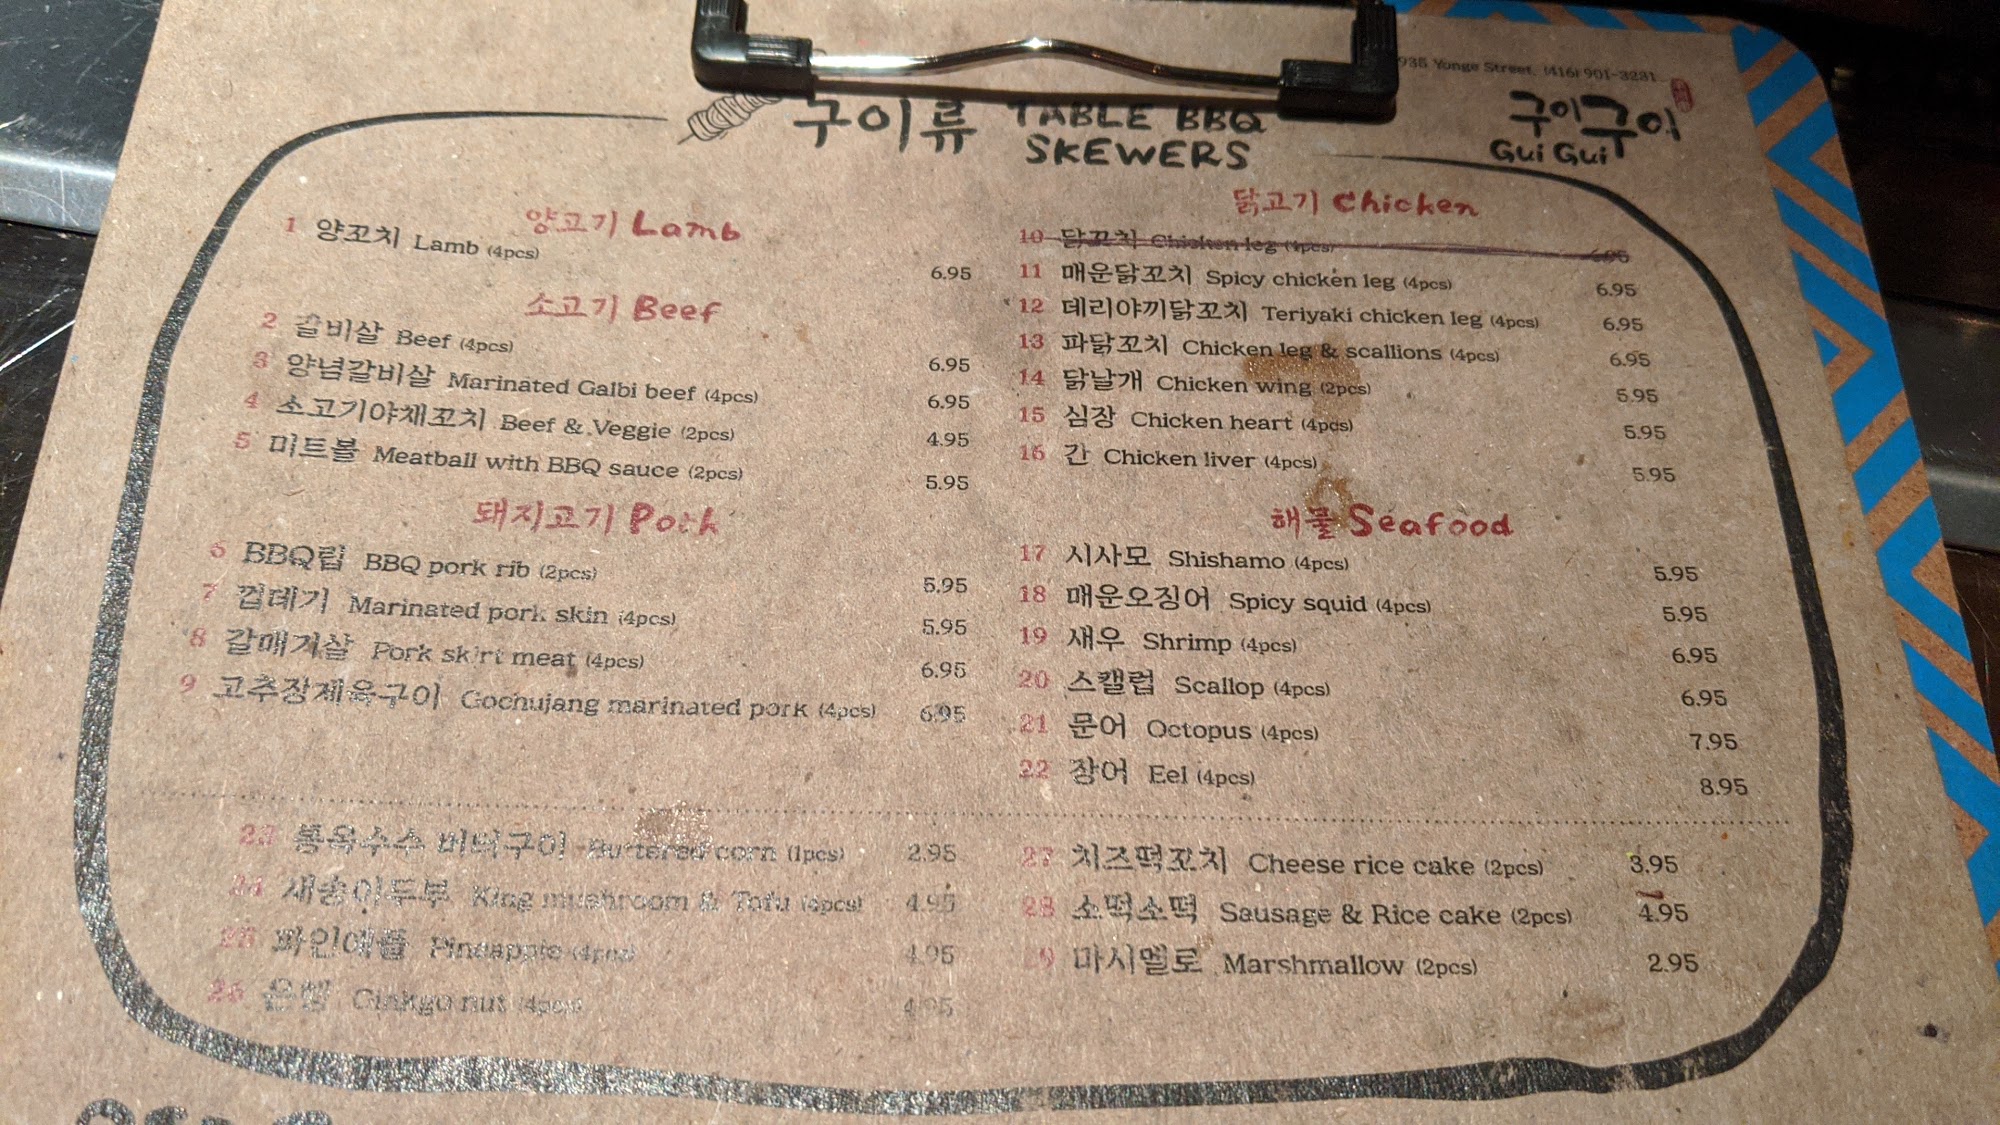 935 Yonge Street, (416) 901-3231
구이류 TABLE BBQ
SKEWERS
구이구이
Gui Gui
양고기 Lamb
1 양꼬치 Lamb (4pcs) 6.95
소고기 Beef
2 갈비살 Beef (4pcs) 6.95
3 양념갈비살 Marinated Galbi beef (4pcs) 6.95
4 소고기야채꼬치 Beef & Veggie (2pcs) 4.95
5 미트볼 Meatball with BBQ sauce (2pcs) 5.95
돼지고기 Pork
6 BBQ립 BBQ pork rib (2pcs) 5.95
7 껍데기 Marinated pork skin (4pcs) 5.95
8 갈매기살 Pork skirt meat (4pcs) 6.95
9 고추장제육구이 Gochujang marinated pork (4pcs) 6.95
닭고기 Chicken
10 닭꼬치 Chicken leg (4pcs) 6.95
11 매운닭꼬치 Spicy chicken leg (4pcs) 6.95
12 데리야끼닭꼬치 Teriyaki chicken leg (4pcs) 6.95
13 파닭꼬치 Chicken leg & scallions (4pcs) 6.95
14 닭날개 Chicken wing (2pcs) 5.95
15 심장 Chicken heart (4pcs) 5.95
16 간 Chicken liver (4pcs) 5.95
해물 Seafood
17 시사모 Shishamo (4pcs) 5.95
18 매운오징어 Spicy squid (4pcs) 5.95
19 새우 Shrimp (4pcs) 6.95
20 스캘럽 Scallop (4pcs) 6.95
21 문어 Octopus (4pcs) 7.95
22 장어 Eel (4pcs) 8.95
23 통옥수수 버터구이 Buttered corn (1pcs) 2.95
24 새송이두부 King mushroom & Tofu (4pcs) 4.95
25 파인애플 Pineapple (4pcs) 4.95
26 은행 Ginkgo nut (4pcs) 4.95
27 치즈떡꼬치 Cheese rice cake (2pcs) 3.95
28 소떡소떡 Sausage & Rice cake (2pcs) 4.95
29 마시멜로 Marshmallow (2pcs) 2.95